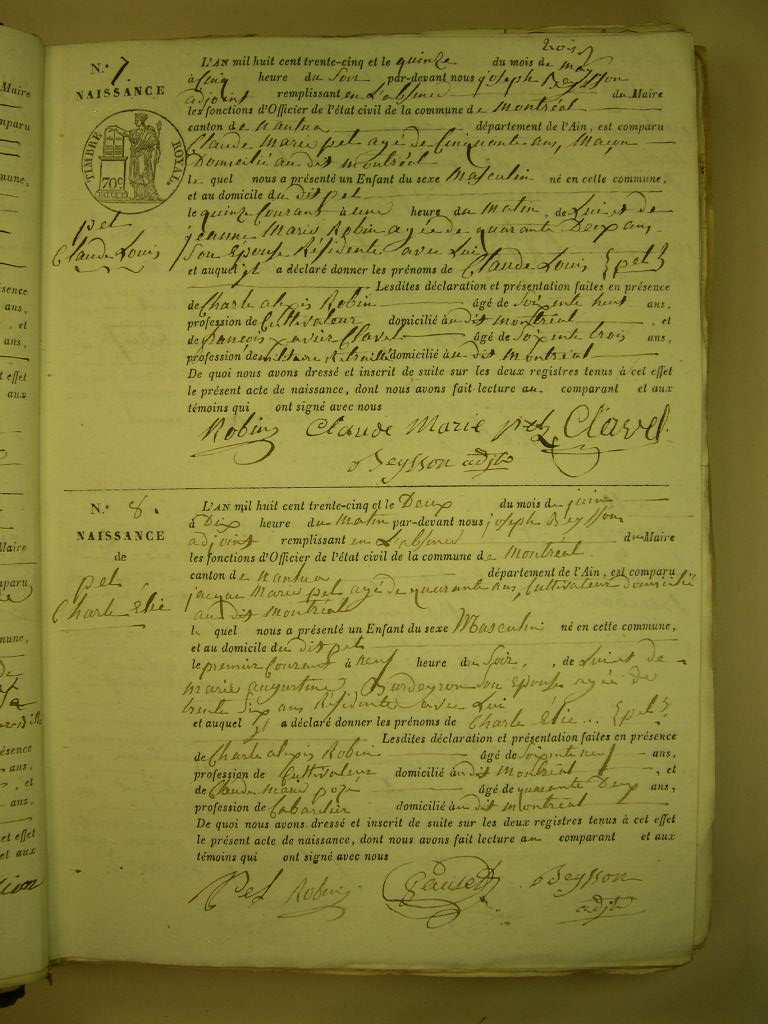 Maire
mparu
mune,
ésence
ans,
, et
ans,
t effet
aux
Maire
mparu
mune,
ésence
ans,
, et
ans,
et effet
et aux
trois
N.o 7.
NAISSANCE
TIMBRE ROYAL
70c
pet
Claude Louis
L'AN mil huit cent trente-cinq et le quinze du mois de mai
à cinq heure du Soir par-devant nous joseph Beysson
adjoint remplissant en L'absence du Maire
les fonctions d'Officier de l'état civil de la commune de montréal
canton de nantua département de l'Ain, est comparu
Claude Marie pet agé de Cinquante ans, Maçon
Domicilié au dit montréal
le quel nous a présenté un Enfant du sexe Masculin né en cette commune,
et au domicile du dit pet
le quinze Courant à une heure du Matin, de Lui et de
jeanne Marie Robin agée de quarante Deux ans
Son Epouse Résidente avec Lui
et auquel il a déclaré donner les prénoms de Claude Louis (pet)
Lesdites déclaration et présentation faites en présence
de Charle alexis Robin âgé de Soixente neuf ans,
profession de Cultivateur domicilié au dit montréal , et
de françois xavier Clavel âgé de Soixente trois ans,
profession de militaire Retraité domicilié au dit montréal
De quoi nous avons dressé et inscrit de suite sur les deux registres tenus à cet effet
le présent acte de naissance, dont nous avons fait lecture au comparant et aux
témoins qui ont signé avec nous
Robin Claude Marie pet Clavel
Beysson adjt
N.o 8.
NAISSANCE
de
pet
Charle Élie
L'AN mil huit cent trente-cinq et le Deux du mois de juin
à Dix heure du Matin par-devant nous joseph Beysson
adjoint remplissant en L'absence du Maire
les fonctions d'Officier de l'état civil de la commune de Montréal
canton de nantua département de l'Ain, est comparu
jacque Marie pet agé de quarante ans, Cultivateur domicilié
au dit montréal
le quel nous a présenté un Enfant du sexe Masculin né en cette commune,
et au domicile du dit pet
le premier Courant à neuf heure du Soir, , de Lui et de
marie augustine Bourdeyron son Epouse agée de
trente Six ans Résidente avec Lui
et auquel il a déclaré donner les prénoms de Charle Élie ... (pet)
Lesdites déclaration et présentation faites en présence
de Charle alexis Robin âgé de Soixente neuf ans,
profession de Cultivateur domicilié au dit Montréal , et
de Claude marie âgé de quarente Deux ans,
profession de Cabartier domicilié au dit montréal
De quoi nous avons dressé et inscrit de suite sur les deux registres tenus à cet effet
le présent acte de naissance, dont nous avons fait lecture au comparant et aux
témoins qui ont signé avec nous
Pet Robin Beysson
adjt